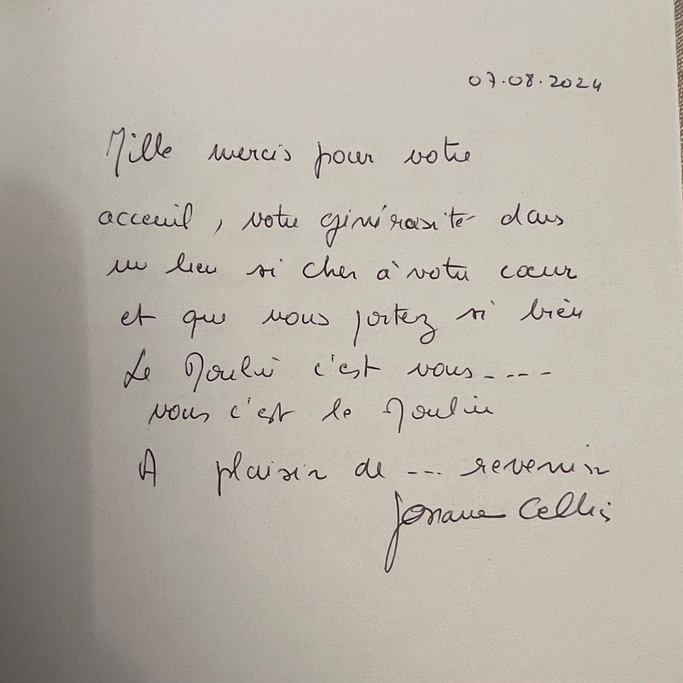 07.08.2024
Mille mercis pour votre
acceuil, votre générosité dans
un lieu si cher à votre cœur
et que vous portez si bien
Le Moulin c'est vous....
vous c'est le Moulin
A plaisir de ... revenir